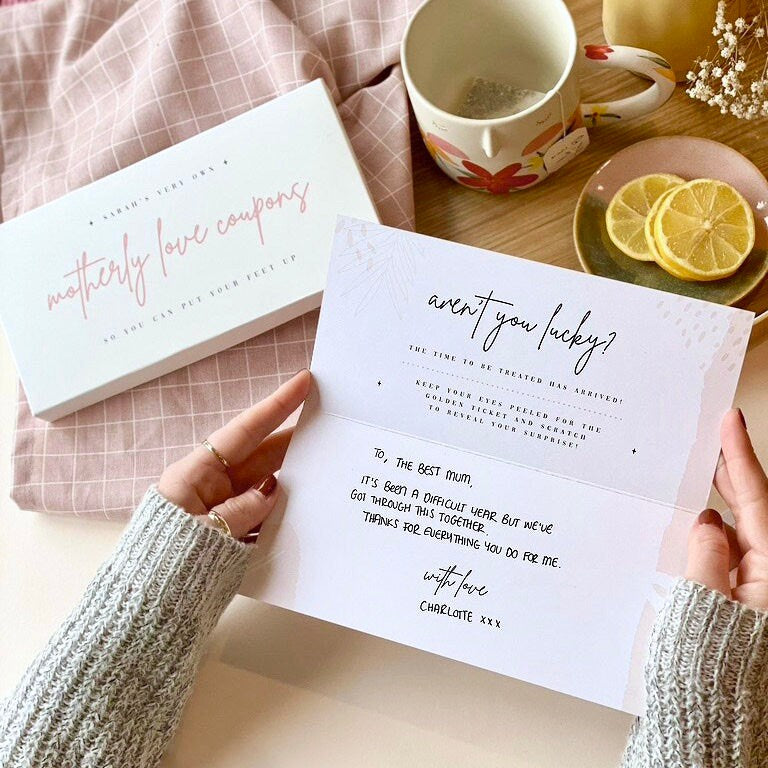 SARAH'S VERY OWN
motherly love coupons
SO YOU CAN PUT YOUR FEET UP
aren't you lucky?
THE TIME TO BE TREATED HAS ARRIVED!
KEEP YOUR EYES PEELED FOR THE
GOLDEN TICKET AND SCRATCH
TO REVEAL YOUR SURPRISE!
TO, THE BEST MUM,
IT'S BEEN A DIFFICULT YEAR BUT WE'VE
GOT THROUGH THIS TOGETHER.
THANKS FOR EVERYTHING YOU DO FOR ME.
with love
CHARLOTTE xxx